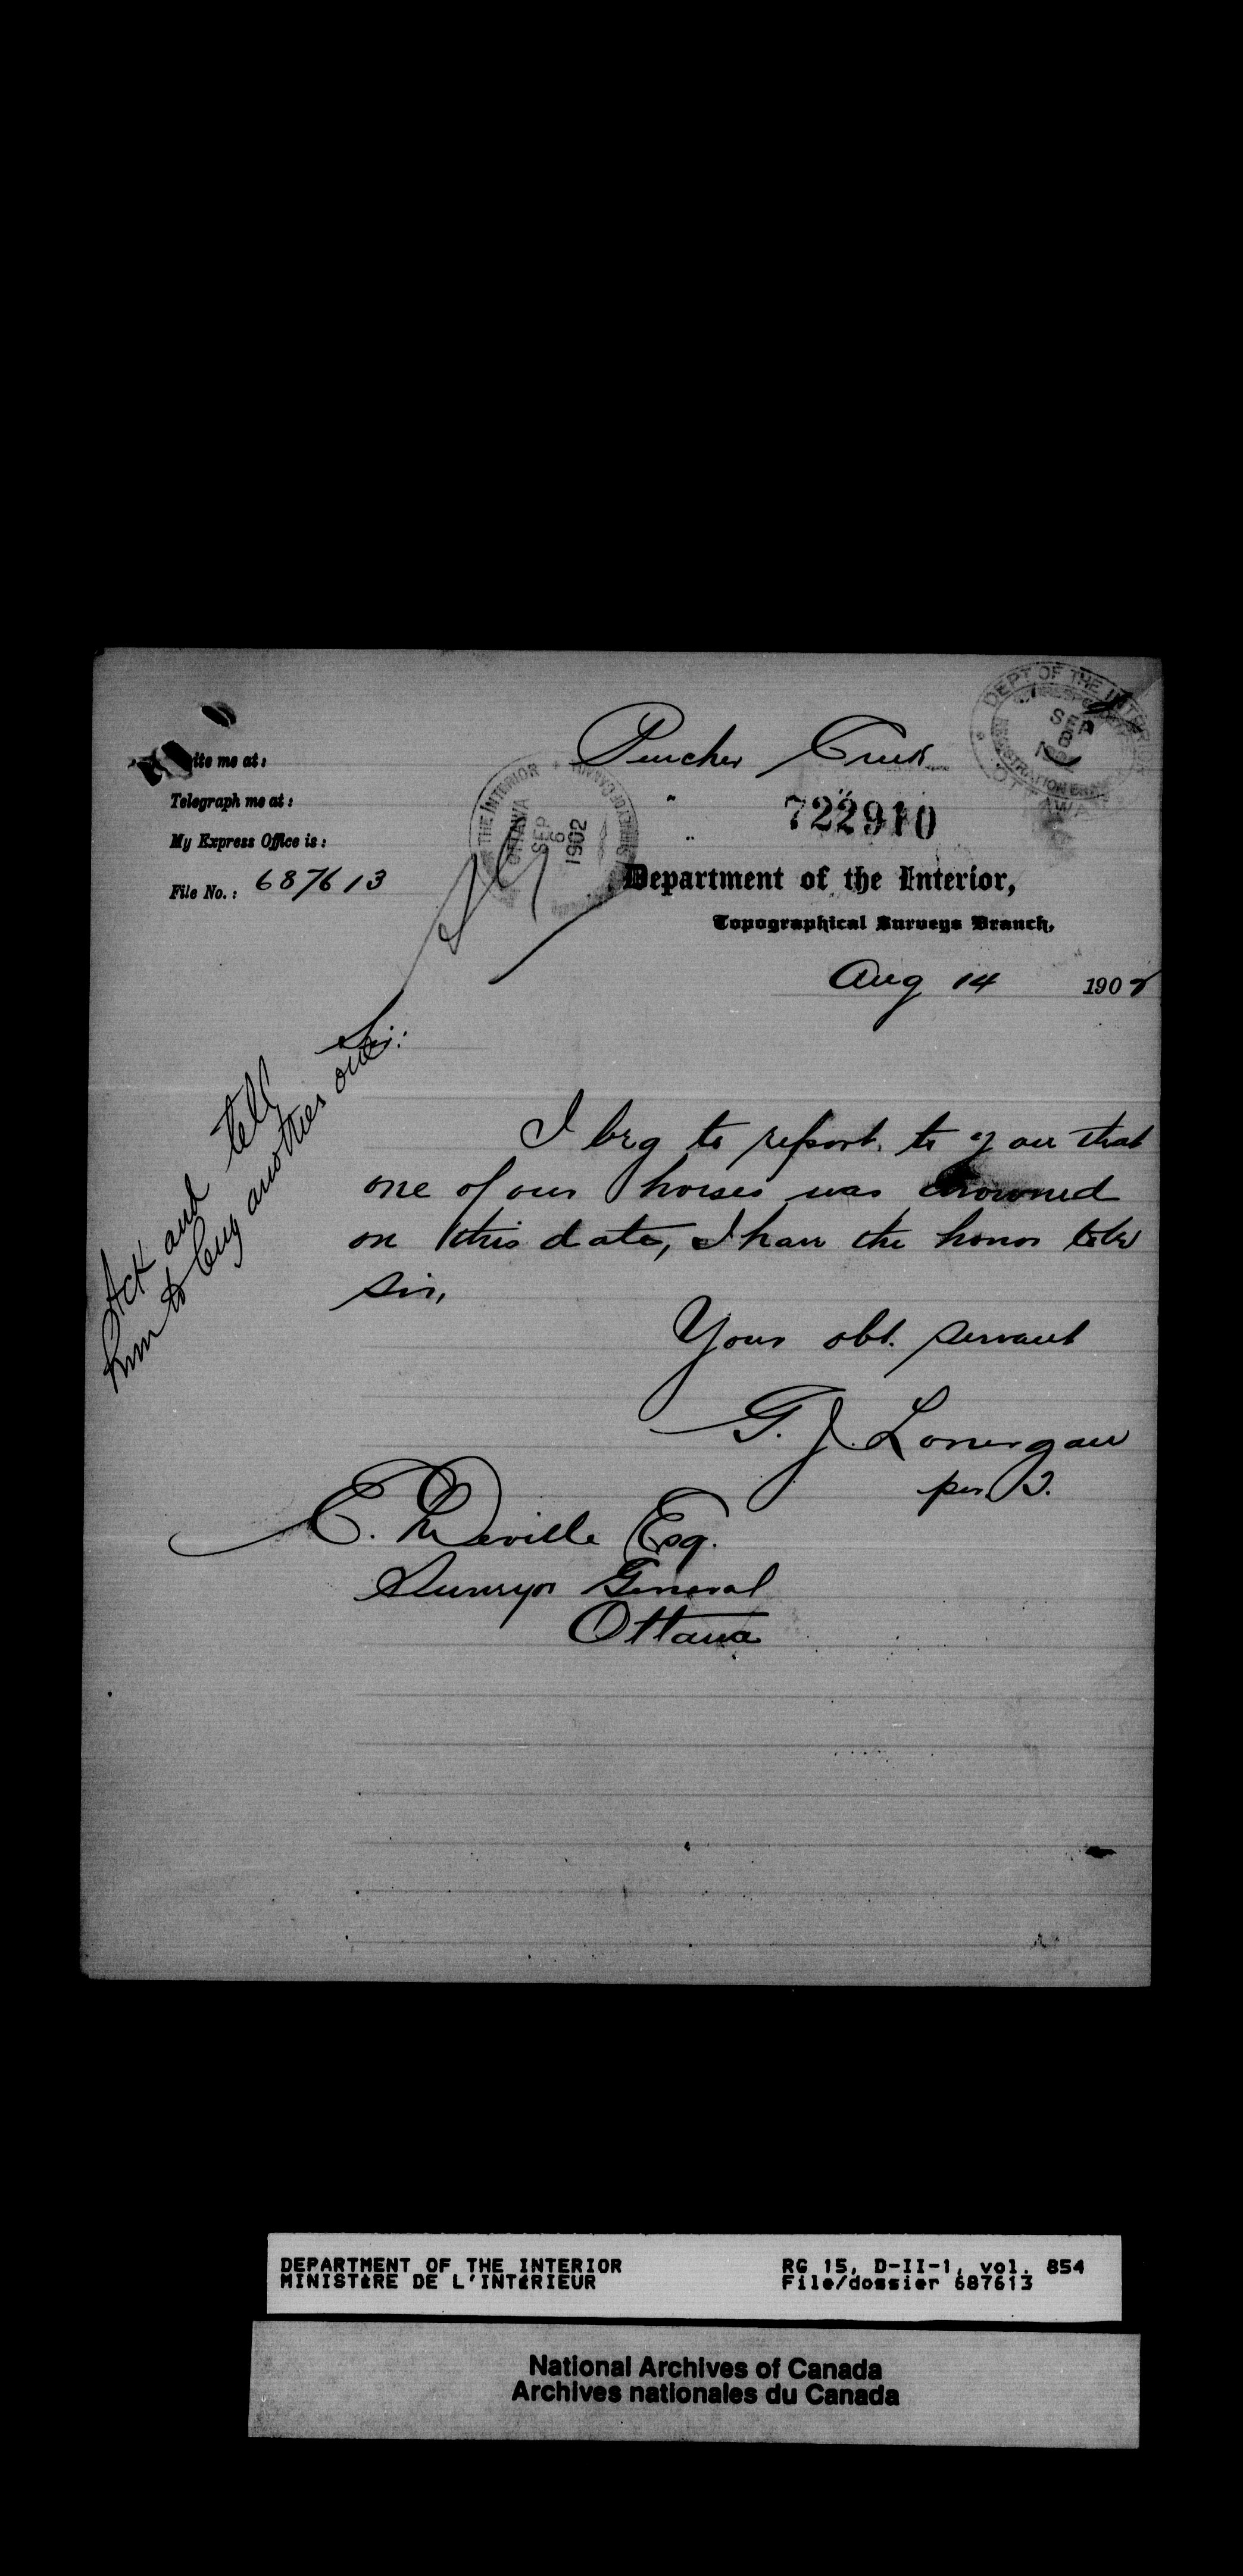 Pincher Creek
Write me at:
Telegraph me at:
My Express Office is:
File No.: 687613
722910
Department of the Interior,
Topographical Surveys Branch,
DEPT OF THE INTERIOR
SEP
8
OTTAWA
THE INTERIOR
OTTAWA
SEP
6
1902
Aug 14 1902
Sir:
Ack and tell
him to buy another one
I beg to report to you that
one of our horses was drowned
on this date, I have the honor to be
sir,
Your obt. servant
G. J. Lonergan
per
E. Deville Esq.
Surveyor General
Ottawa
DEPARTMENT OF THE INTERIOR
MINISTÈRE DE L'INTÉRIEUR
RG 15, D-II-1, vol. 854
File/dossier 687613
National Archives of Canada
Archives nationales du Canada